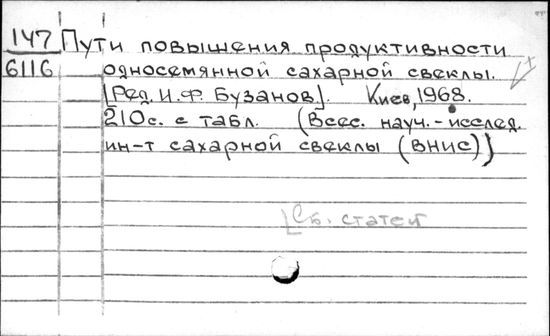 147 Пути повышения продуктивности
6116 односемянной сахарной свеклы.
[Ред. И.Ф. Бузанов.] Киев, 1968.
210с. с табл. (Всес. науч.-исслед.
ин-т сахарной свеклы (ВНИС))
[Сб. статей